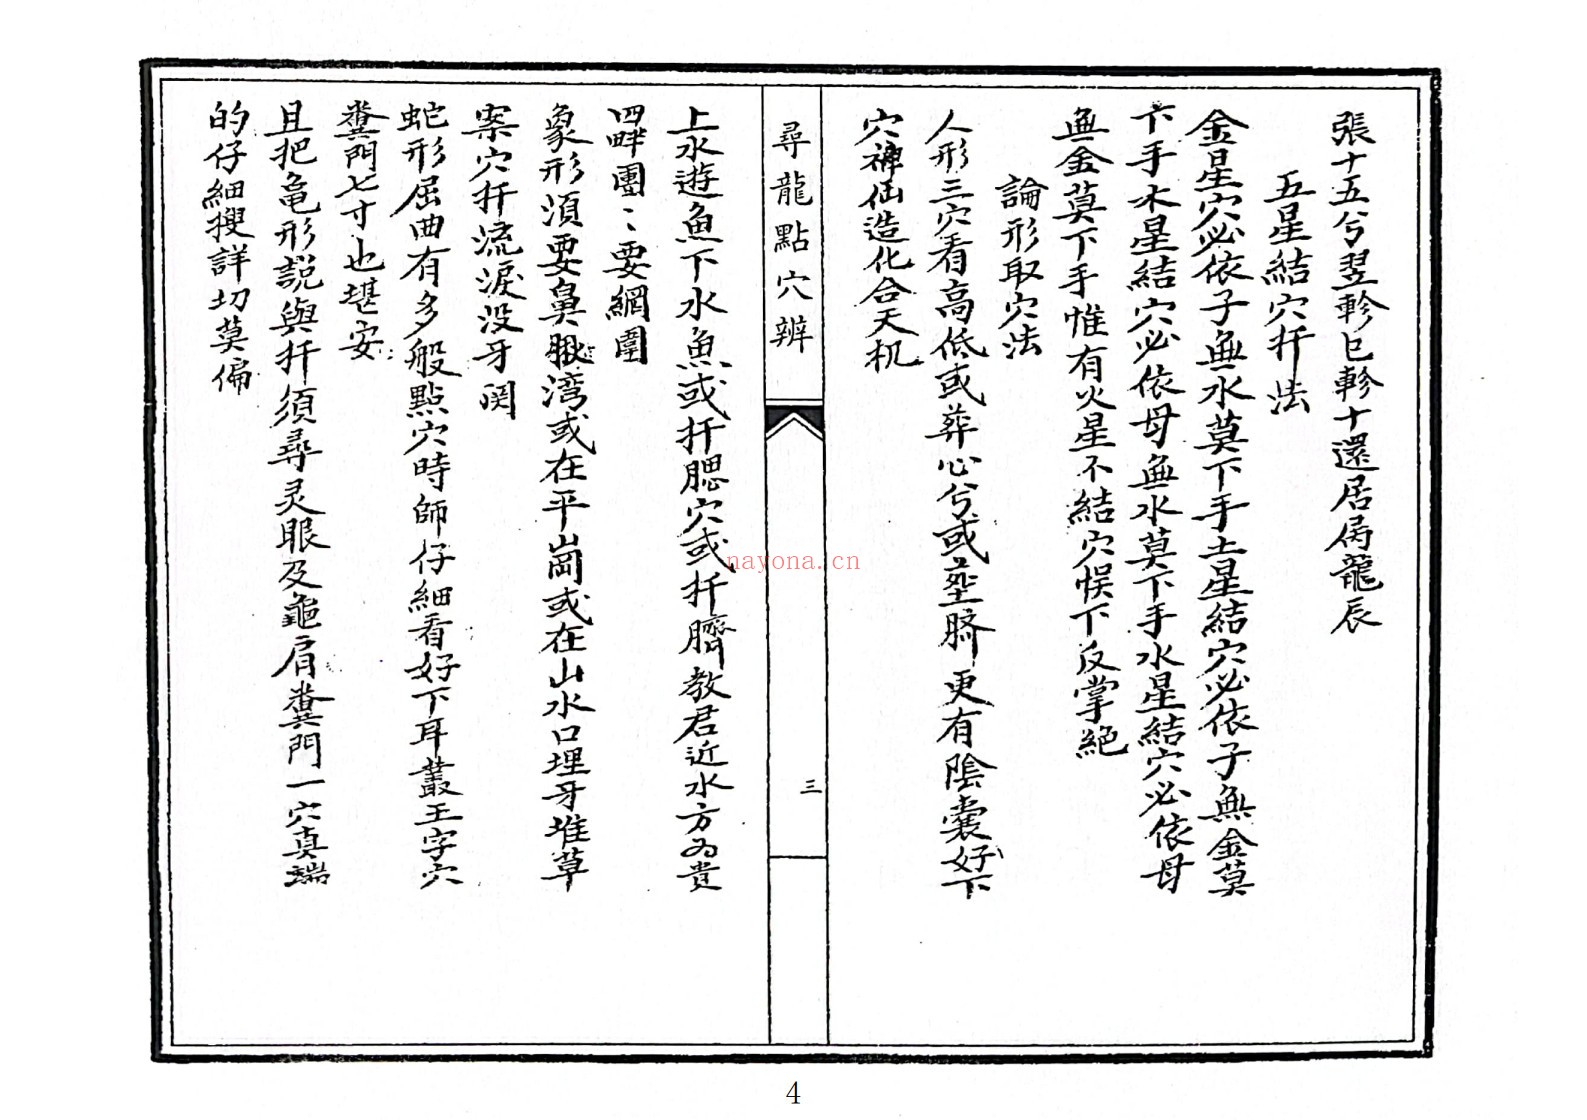 張十五兮翌軫巳軫十還居角龍辰
五星結穴扦法
金星穴必依子無水莫下手土星結穴必依子無金莫
下手木星結穴必依母無水莫下手水星結穴必依母
無金莫下手惟有火星不結穴悮下反掌絕
論形取穴法
人形三穴看高低或葬心兮或塟臍更有陰囊好下
穴神仙造化合天机
尋龍點穴辨
三
上水遊魚下水魚或扦腮穴或扦臍教君近水方為貴
四畔團〻要網圍
象形須要鼻湫湾或在平崗或在山水口埋牙堆草
案穴扦流淚没牙関
蛇形屈曲有多般點穴時師仔細看好下耳叢王字穴
糞門七寸也堪安
且把亀形説與扦須尋灵眼及龜肩糞門一穴真端
的仔細搜詳切莫偏
nayona.cn
4